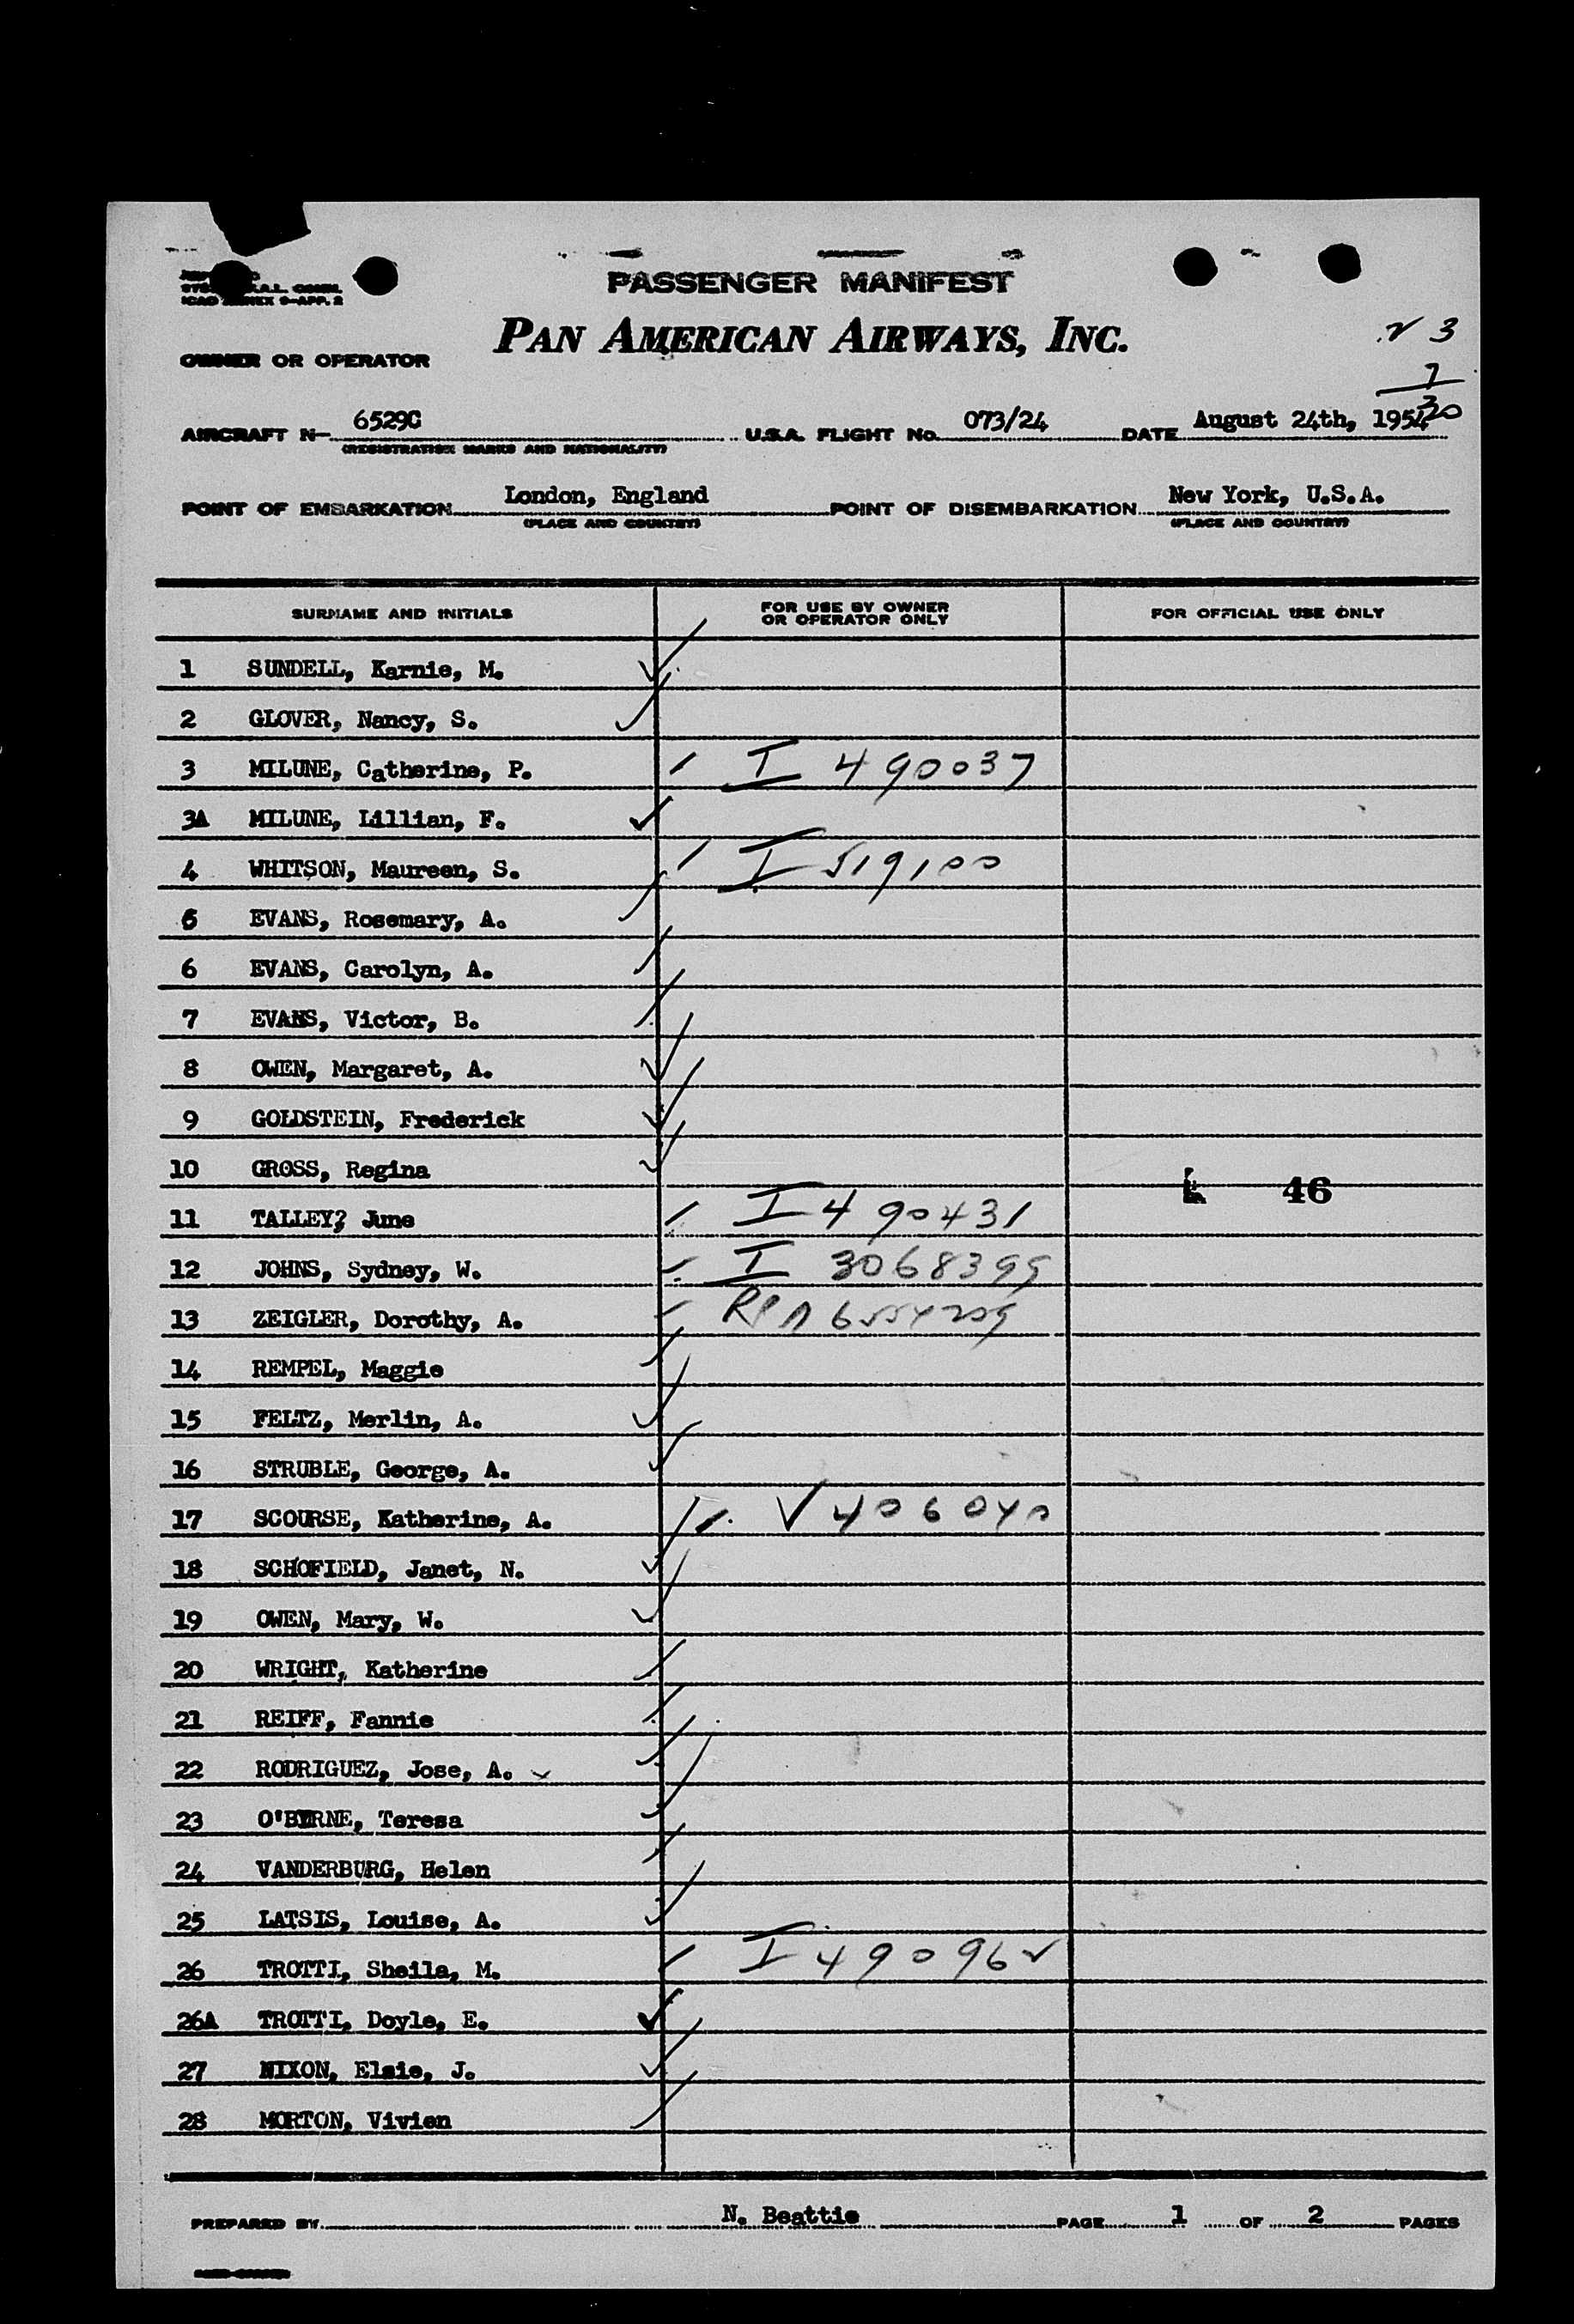 PASSENGER MANIFEST
ICAO ANNEX 9-APP. 2
PAN AMERICAN AIRWAYS, INC.
OWNER OR OPERATOR
AIRCRAFT N- 6529C U.S.A. FLIGHT No. 073/24 DATE August 24th, 1954
(REGISTRATION MARKS AND NATIONALITY)
POINT OF EMBARKATION London, England POINT OF DISEMBARKATION New York, U.S.A.
(PLACE AND COUNTRY) (PLACE AND COUNTRY)
SURNAME AND INITIALS FOR USE BY OWNER OR OPERATOR ONLY FOR OFFICIAL USE ONLY
1 SUNDELL, Karnie, M.
2 GLOVER, Nancy, S.
3 MILUNE, Catherine, P. I 490037
3A MILUNE, Lillian, F.
4 WHITSON, Maureen, S. I 519100
5 EVANS, Rosemary, A.
6 EVANS, Carolyn, A.
7 EVANS, Victor, B.
8 OWEN, Margaret, A.
9 GOLDSTEIN, Frederick
10 GROSS, Regina
46
11 TALLEY? June I 490431
12 JOHNS, Sydney, W. I 3068399
13 ZEIGLER, Dorothy, A.
14 REMPEL, Maggie
15 FELTZ, Merlin, A.
16 STRUBLE, George, A.
17 SCOURSE, Katherine, A. V 406040
18 SCHOFIELD, Janet, N.
19 OWEN, Mary, W.
20 WRIGHT, Katherine
21 REIFF, Fannie
22 RODRIGUEZ, Jose, A.
23 O'BYRNE, Teresa
24 VANDERBURG, Helen
25 LATSIS, Louise, A.
26 TROTTI, Sheila, M. I 490962
26A TROTTI, Doyle, E.
27 NIXON, Elsie, J.
28 MORTON, Vivien
PREPARED BY N. Beattie PAGE 1 OF 2 PAGES